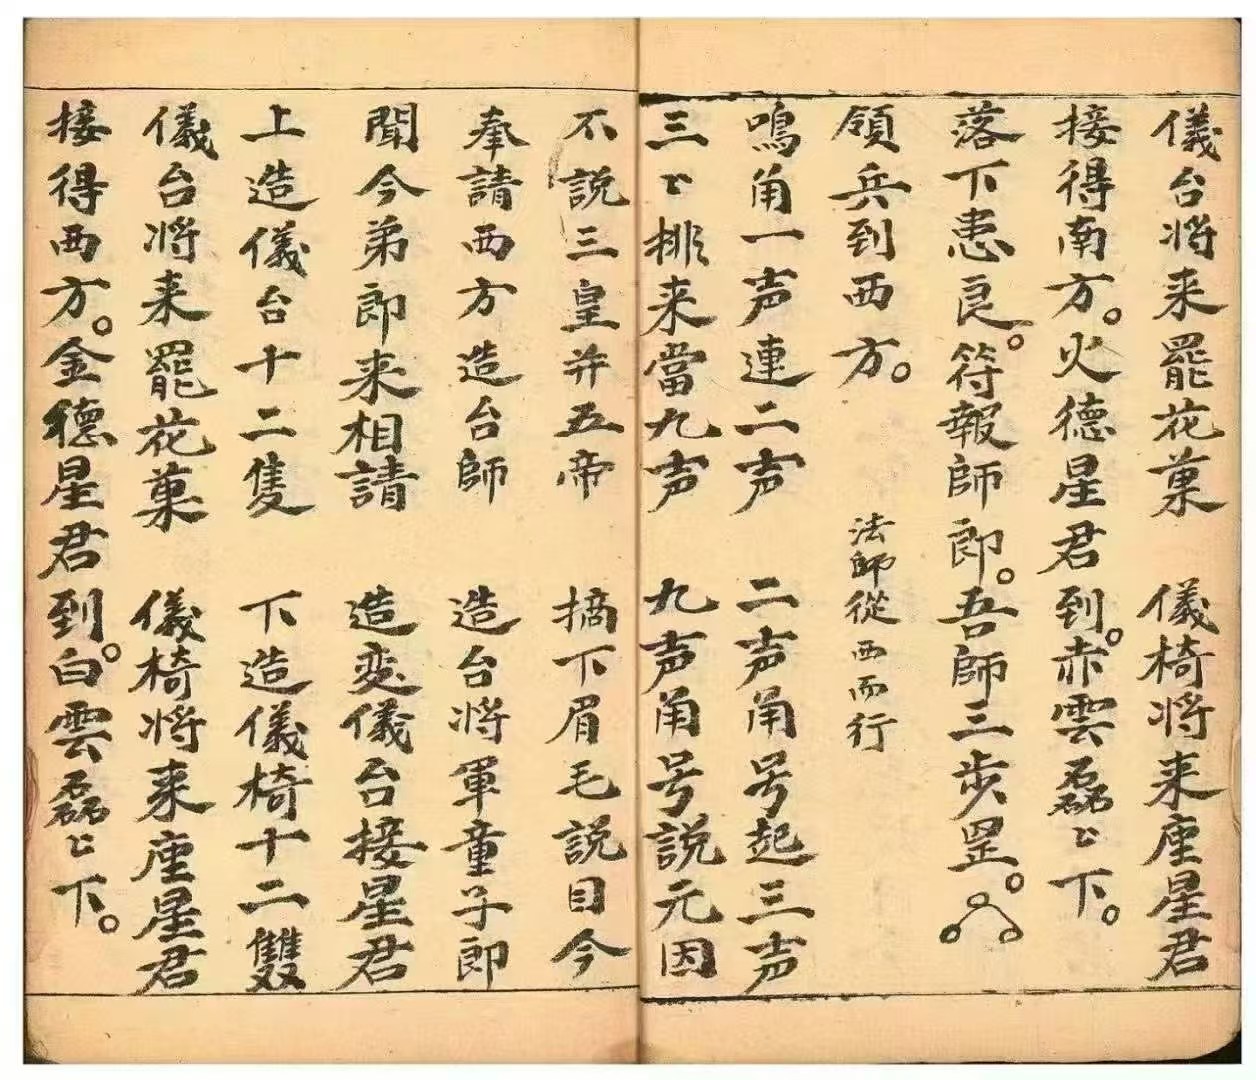 儀台将来罷花菓　儀椅将来座星君
接得南方。火德星君到。赤雲磊〻下。
落下患良。符報師郎。吾師三步罡。
領兵到西方。　法師從西而行
鳴角一声連二声　二声角号起三声
三〻排来當九声　九声角号説元因
不説三皇并五帝　摘下眉毛説目今
奉請西方造台師　造台将軍童子郎
聞今弟郎来相請　造变儀台接星君
上造儀台十二隻　下造儀椅十二雙
儀台将来罷花菓　儀椅将来座星君
接得西方。金德星君到。白雲磊〻下。